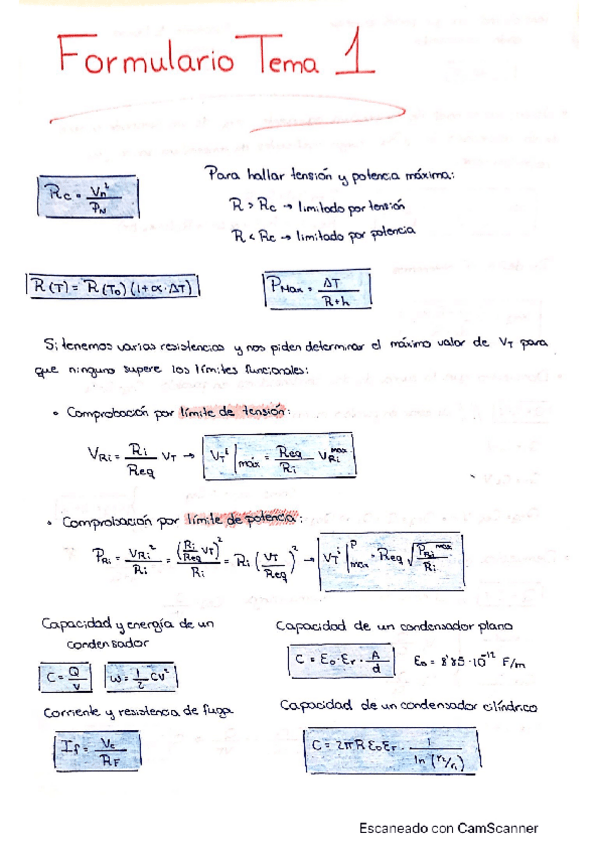 Formulario Tema 1
Rc = Vn² / PN
Para hallar tensión y potencia máxima:
R > Rc → limitado por tensión
R < Rc → limitado por potencia
R(T) = R(T₀) (1+α·ΔT)
PMax = ΔT / Rth
Si tenemos varias resistencias y nos piden determinar el máximo valor de VT para
que ninguno supere los límites funcionales:
• Comprobación por límite de tensión:
VRi = Ri / Req VT → VTⁱ |máx = Req / Ri VRi^máx
• Comprobación por límite de potencia:
PRi = VRi² / Ri = (Ri/Req VT)² / Ri = Ri (VT / Req)² → VTⁱ |^P máx = Req √(PRi^máx / Ri)
Capacidad y energía de un
condensador
C = Q / V   ω = 1/2 CV²
Capacidad de un condensador plano
C = ε₀·εr · A / d   ε₀ = 8'85·10⁻¹² F/m
Corriente y resistencia de fuga
If = Vc / RF
Capacidad de un condensador cilíndrico
C = 2πR ε₀εr · 1 / ln (r₂/r₁)
Escaneado con CamScanner